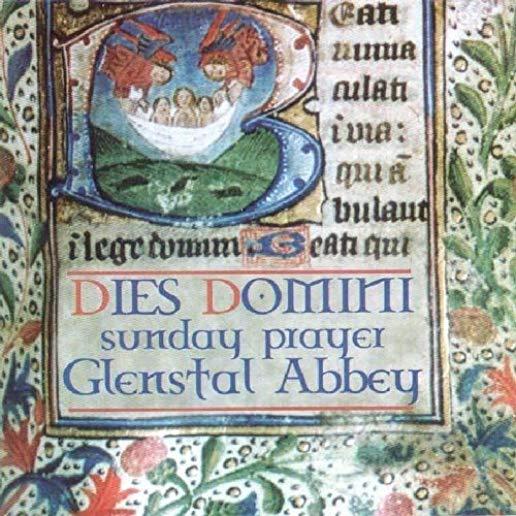 BEati
inma
culati
i via:
qui ā
bulant
i lege domini Beati qui
DIES DOMINI
sunday prayer
Glenstal Abbey